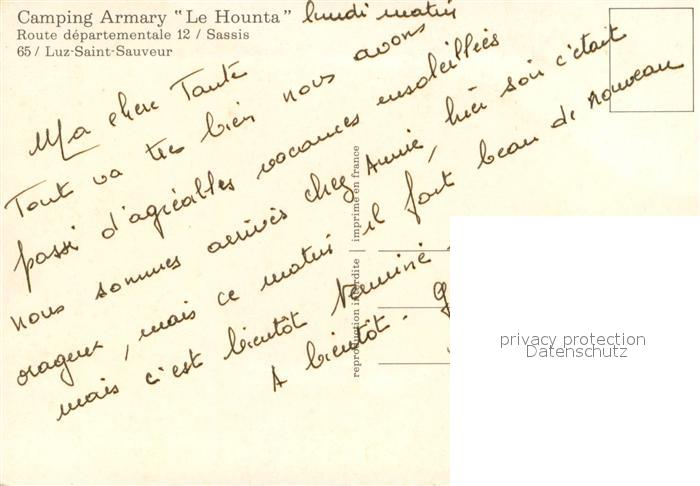 Camping Armary "Le Hounta"
Route départementale 12 / Sassis
65 / Luz-Saint-Sauveur
lundi matin
Ma chère Tante
Tout va très bien nous avons
passé d'agréables vacances ensoleillées
nous sommes arrivés chez Annie, hier soir c'était
orageux, mais ce matin il fait beau de nouveau
mais c'est bientôt terminé
A bientôt -
reproduction interdite imprimé en france
privacy protection
Datenschutz